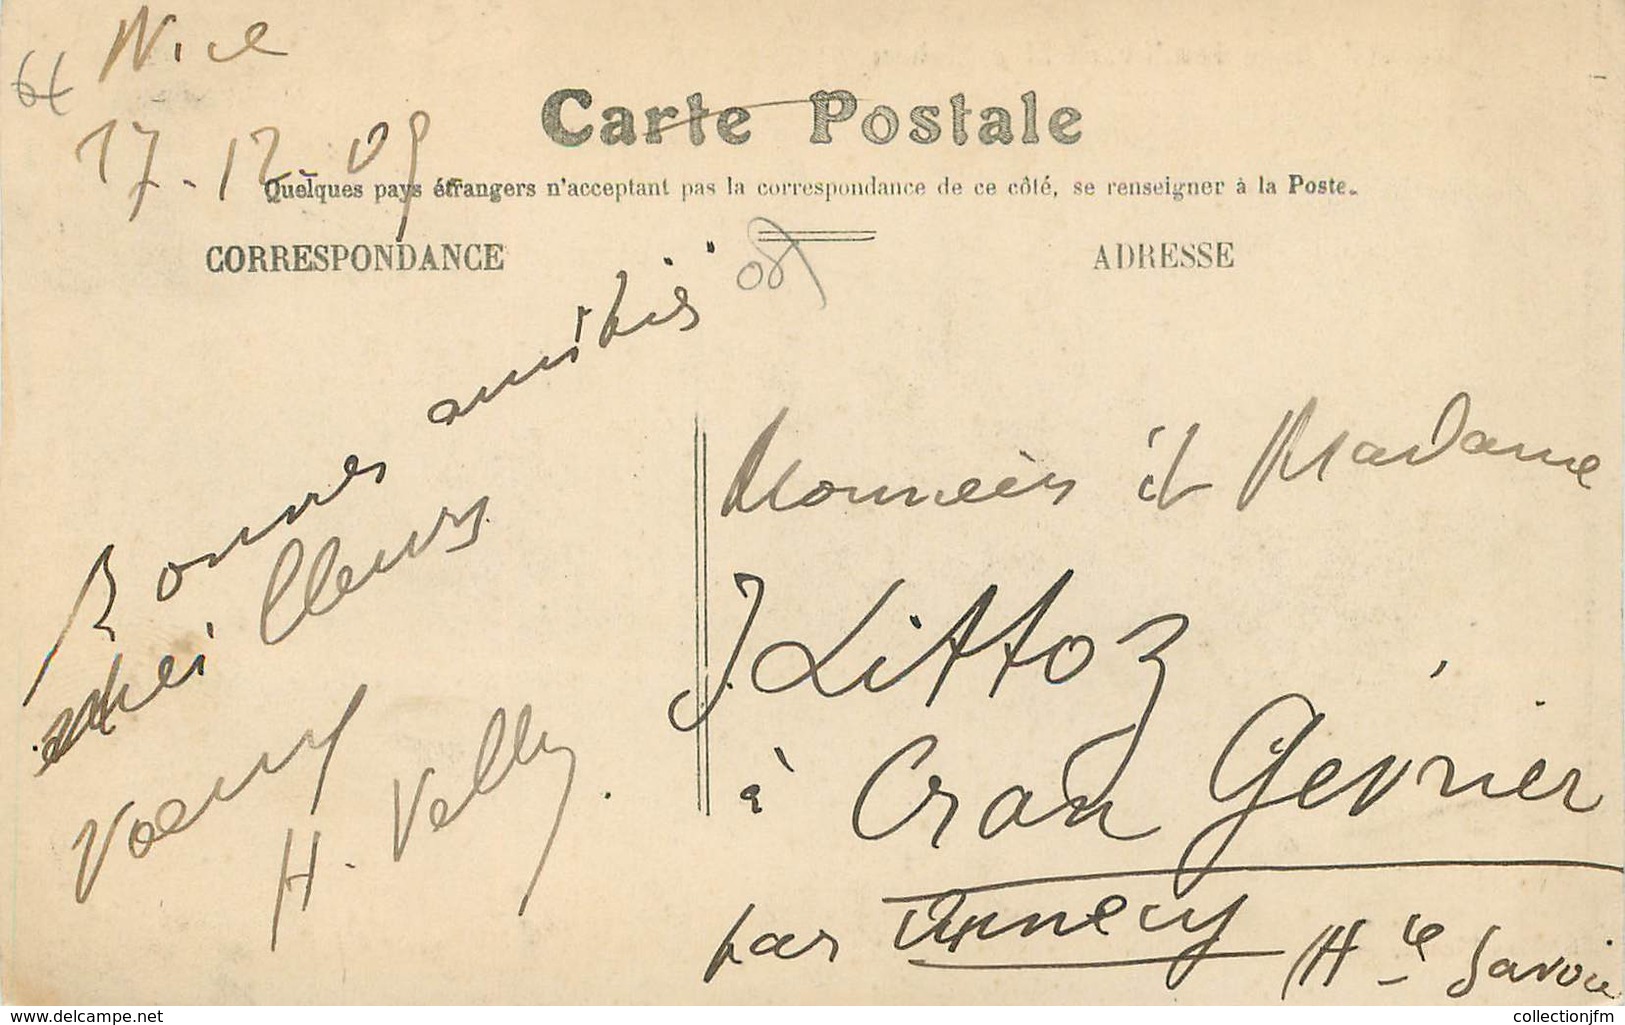 64
Nice
17-12-09
Carte Postale
Quelques pays étrangers n'acceptant pas la correspondance de ce côté, se renseigner à la Poste.
CORRESPONDANCE
ADRESSE
08
Bonnes amitiés
meilleurs
voeux
H. Velly.
Monsieur et Madame
J Littoz
à Cran Gévrier
par Annecy
(Hte Savoie
www.delcampe.net
collectionjfm